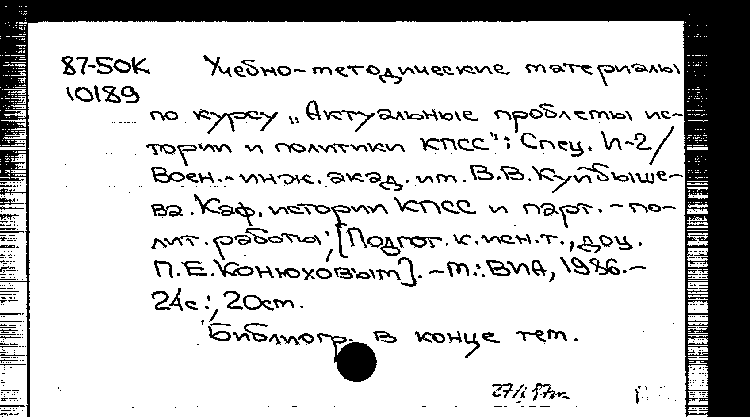 87-5ОК Учебно-методические материалы
10189
по курсу „Актуальные проблемы ис-
тории и политики КПСС": Спец. И-2/
Воен.-инж. акад. им. В.В. Куйбыше-
ва. Каф. истории КПСС и парт.-по-
лит. работы; [Подгот. к.ист.н., доц.
П.Е. Конюховым]. - М.: ВИА, 1986.-
24с.; 20см.
Библиогр. в конце тем.